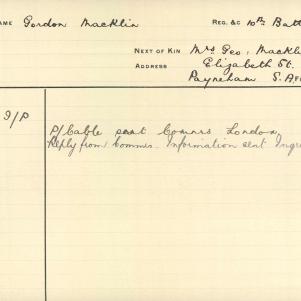 AME Gordon Macklin REG. &C 10th Batt
NEXT OF KIN Mrs Geo. Mackli
ADDRESS Elizabeth St.
Payneham S.A
I/P
P/Cable sent Comnrs London
Reply from Commrs. Information sent Ingui